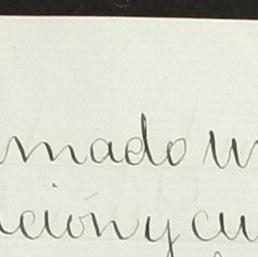 mado un
ción y cu